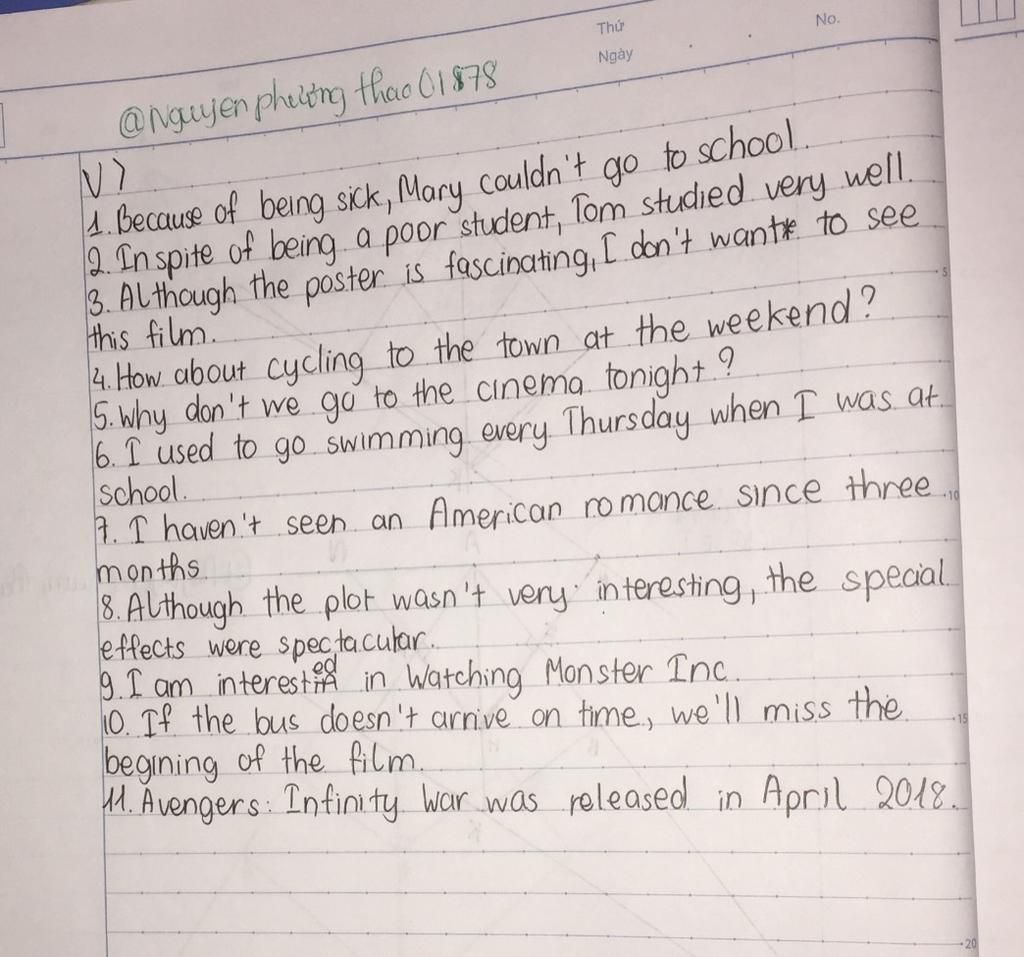 Thứ
No.
Ngày
@Nguyen phương thao 01878
V)
1. Because of being sick, Mary couldn't go to school.
2. Inspite of being a poor student, Tom studied very well.
3. Although the poster is fascinating, I don't want to see
this film.
5
4. How about cycling to the town at the weekend?
5. Why don't we go to the cinema tonight?
6. I used to go swimming every Thursday when I was at
school.
7. I haven't seen an American romance since three
10
months
8. Although the plot wasn't very interesting, the special
effects were spectacular.
9. I am interested in Watching Monster Inc.
10. If the bus doesn't arrive on time, we'll miss the
15
begining of the film.
11. Avengers: Infinity War was released in April 2018.
20